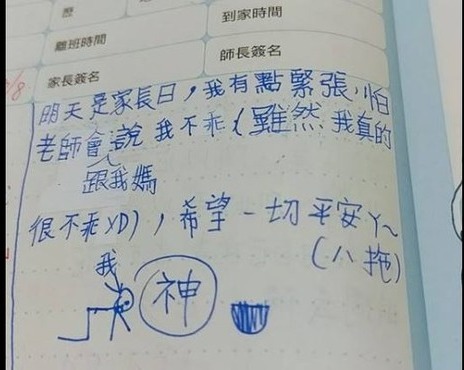 到家時間
離班時間
師長簽名
家長簽名
明天是家長日，我有點緊張，怕
老師會跟我媽說我不乖(雖然我真的
很不乖XD)，希望一切平安ㄚ~
(ㄅ拖)
我
神